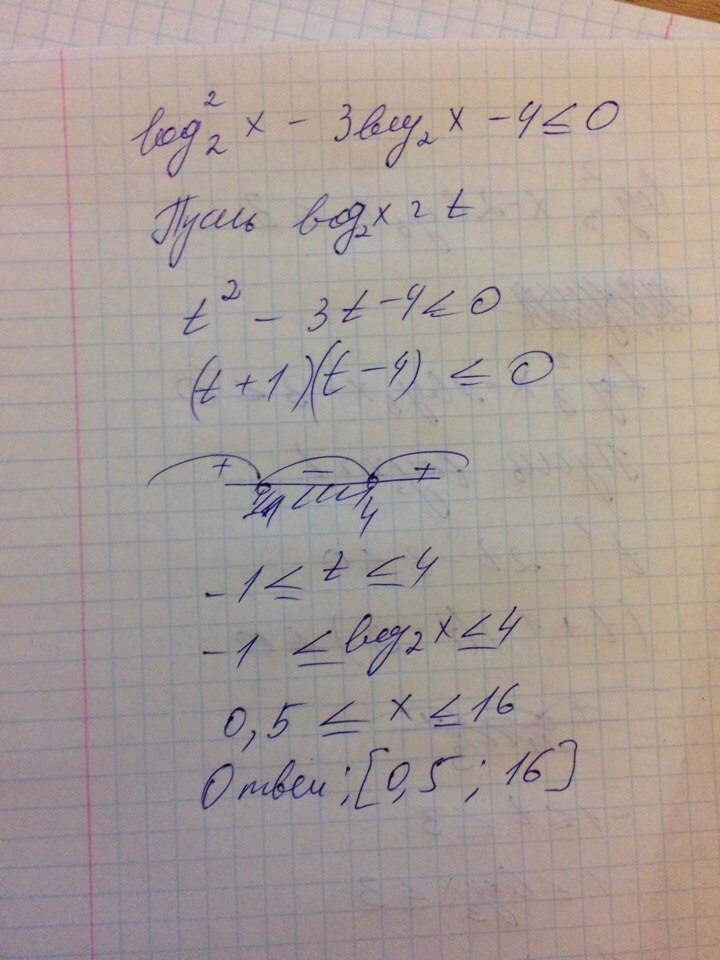 log₂² x - 3log₂ x - 4 ≤ 0
Пусть log₂x = t
t² - 3t - 4 ≤ 0
(t + 1)(t - 4) ≤ 0
+ - +
-1 4
-1 ≤ t ≤ 4
-1 ≤ log₂ x ≤ 4
0,5 ≤ x ≤ 16
Ответ: [0,5 ; 16]